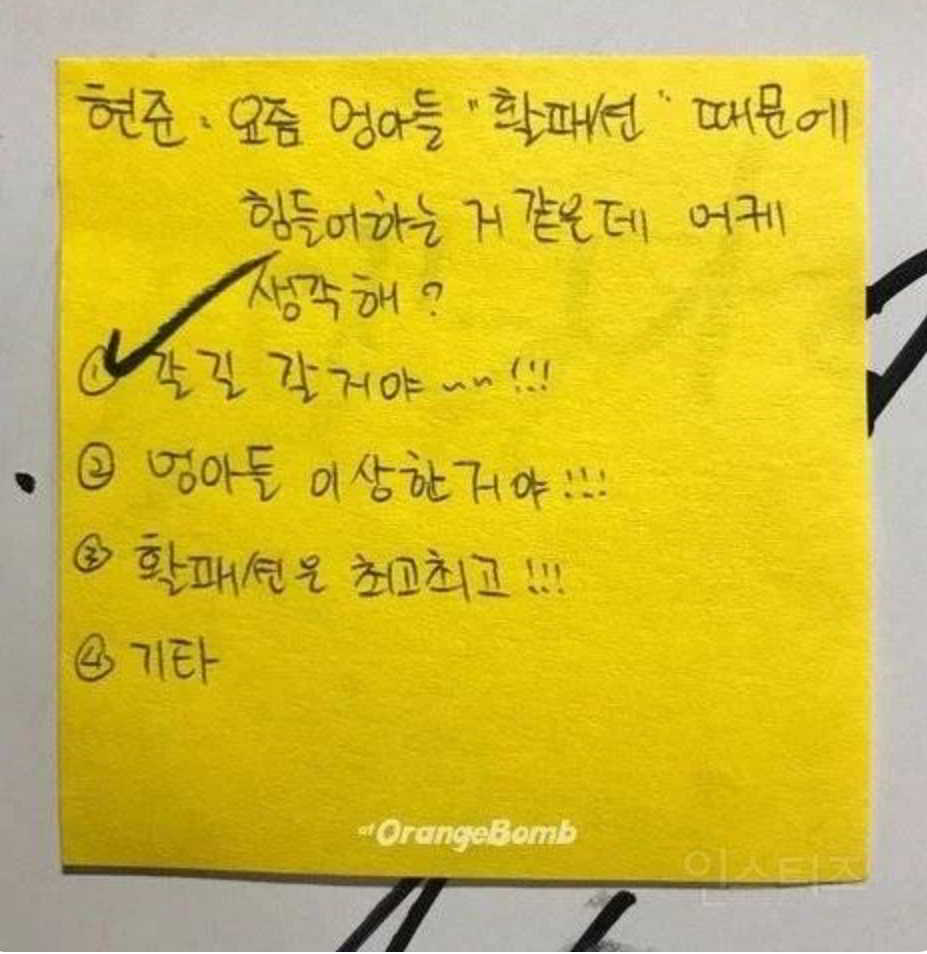 현준 : 요즘 엉아들 "활패션" 때문에
힘들어하는 거 같은데 어케
생각해?
① 갈길 갈거야~~!!!
② 엉아들 이상한거야!!!
③ 활패션은 최고최고!!!
④ 기타
at OrangeBomb
인스티즈